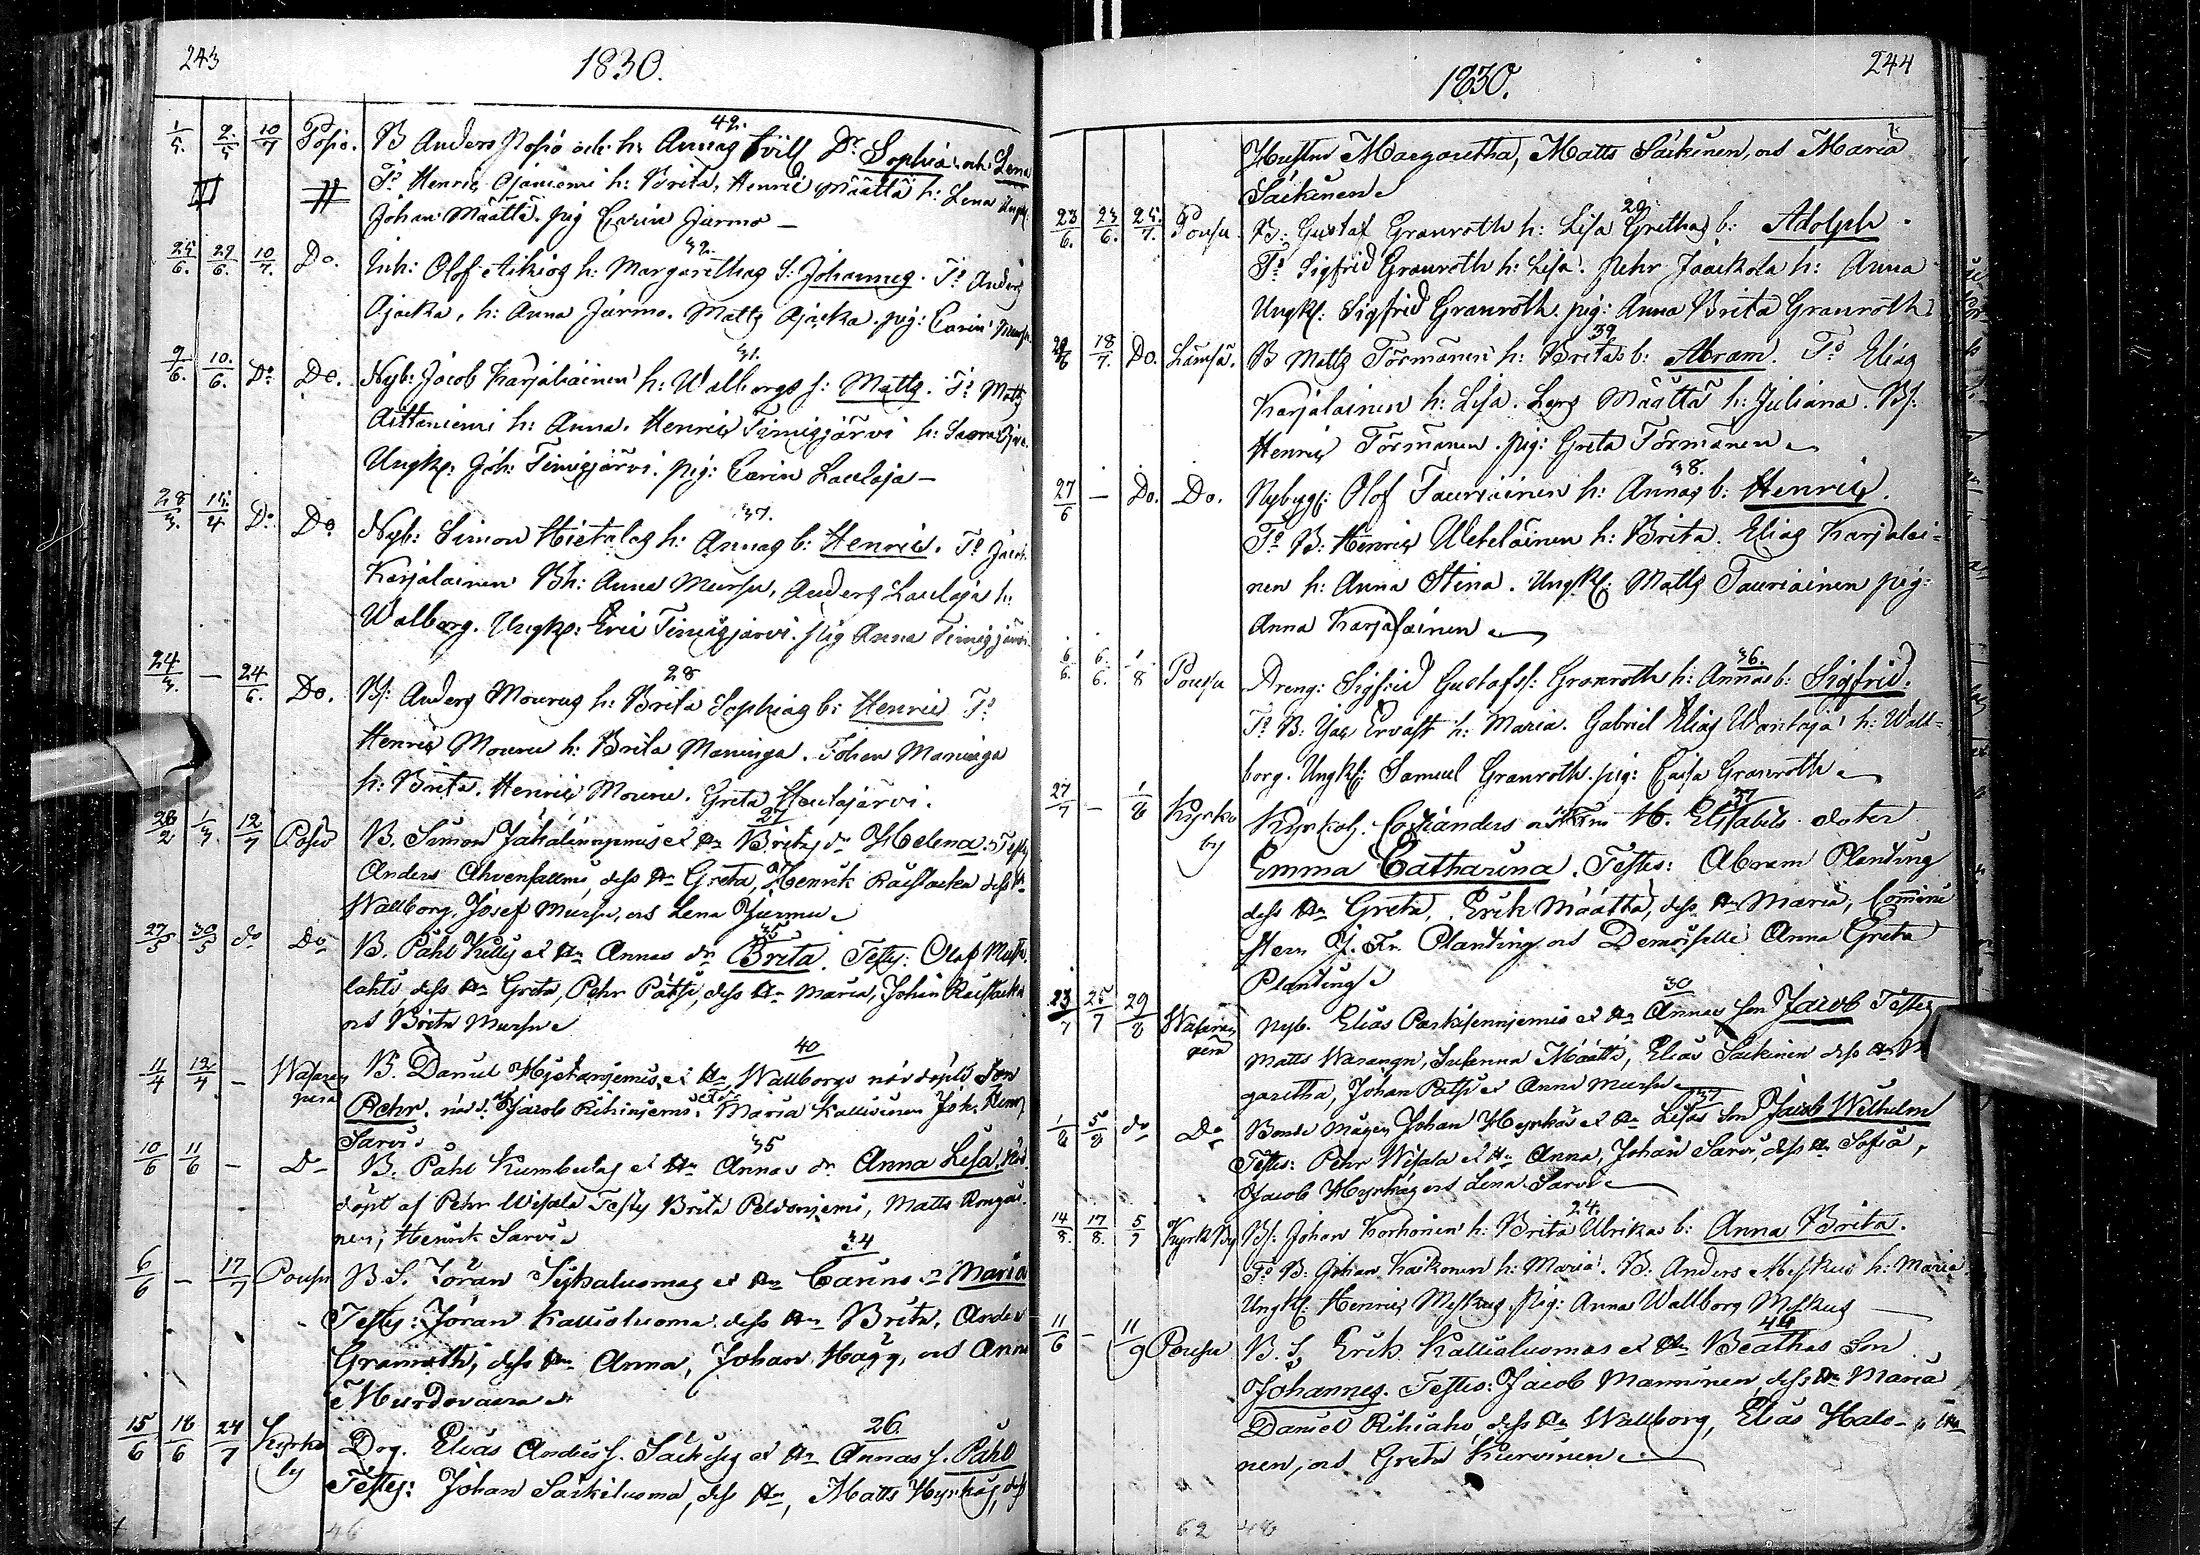 243
1830.
42.
1/5. 2./5 10/7 Posio. B Anders Posio och h: Annas tvill Dr. Sophia och Lena
Ts Henric Ojaniemi h: Brita, Henric Määttä h: Lena
Johan Määttä. pig Carin Jurmo —
39.
25/6. 29/6. 10/7. Do. Inh: Olof Aikios h: Margarethas S: Johannes. Ts Anders
Ajacka, h: Anna Jurmo. Matts Ajacka. pig: Carin
31.
9/6. 10./6. Do Do. Nyb: Jacob Karjalainen h: Walborgs s: Matts. Ts Matts
Aittaniemi h: Anna. Henric Timisjärvi h: Saara
Ungk: Joh: Timisjärvi. pig: Carin Laulaja —
37.
28/3. 4 Do Do Nyb: Simon Hietalas h: Annas b: Henric. Ts Jacob
Karjalainen Bh: Anna Mursu, Anders Laulaja h:
Walborg. Ungk: Eric Timisjärvi. pig Anna Timisjärvi
28
24/3. — 24/6. Do. Bs: Anders Mourus h: Brita Sophias b: Henric Ts
Henric Mouru h: Brita Maninga. Johan Maninga
h: Brita. Henric Mouru. Greta
27
28/2 1/3. 12/7 Posio B. Simon et Hu Britas dr Helena. Testes
Anders dess Hu Greta, Henrik Raistacka dess Hu
Wallborg, Josef Mursu, och Lena Jurmu
35
27/5 30/5 do Do B. Påhl Killis et Hu Annas dr Brita. Testes: Olof
lahti dess Hu Greta, Pehr Pätsi, dess Hu Maria, Johan Raistacka
och Brita Mursu
40
11/4 12/4 — Wasaran perä B. Daniel et Hu Wallborgs nöddöpte Son
Pehr. Jacob Maria Kallioinen Joh. Henr.
Sarvi
35
10/6 11/6 — Do B. Påhl Kumbulas et Hu Annas dr Anna Lisa. nöd.
döpt af Pehr Wisala Testes Brita Peldoniemi, Matts
nen, Henrik Sarvi
34
6/6 — 17/7 Pousu B. S. Jöran et Hu Carins dr Maria
Testes: Jöran Kallioluoma dess Hu Brita, Anders
Granroth, dess Hu Anna, Johan Hägg, och Anna
Murdovaara
26.
15/6 18/6 24/7 Kyrko by Drg. Elias Anders s. Säckises et Hu Annas s. Påhl
Testes: Johan Särkiluoma, dess Hu, Matts Hyrkäs, dess
46
244
1830.
Hustru Margaretha, Matts Säikinen, och Maria
Säikinen
29.
23/6. 23/6. 25./7. Pousu B: Gustaf Granroth h: Lisa Grethas b: Adolph.
Ts Sigfrid Granroth h: Lisa. Pehr Jaackola h: Anna
Ungk: Sigfrid Granroth pig: Anna Brita Granroth
39
18/7. Do. Lämsä. B Matts Törmänen h: Britas b: Abram. Ts Elias
Karjalainen h: Lisa. Lars Määttä h: Juliana. Bs:
Henric Törmänen. pig: Greta Törmänen
38.
27/6 — Do. Do. Nybygg: Olof Tauriainen h: Annas b: Henric.
Ts B: Henric Uleheläinen h: Brita. Elias Karjalai=
nen h: Anna Stina. Ungk: Matts Tauriainen pig:
Anna Karjalainen
36.
6/6. 6./6. 1/8 Pousu Dreng: Sigfrid Gustafss: Granroth h: Annas b: Sigfrid.
Ts B: Ervast h: Maria. Gabriel Elias h: Wall=
borg. Ungk: Samuel Granroth. pig: Caisa Granroth
37
27/7 — 1/8 Kyrko by Kyrkoh. Cajanders och H. Elisabets doter
Emma Catharina. Testes: Abram Planting
dess Hu Greta, Erik Määttä, dess Hu Maria,
Herr J. Fr. Planting och Demoiselle Anna Greta
Planting
30
23/7 25/7 29/8 Wasaran perä Nyb. Elias et Hu Annas Son Jacob Testes
Matts Susanna Määttä, Elias Säikinen dess Hu
garetha, Johan Pätsi et Anna Mursu
37
1/8 5/8 do Do Bonde Johan Hyrkäs et Hu Lisas Son Jacob Wilhelm
Testes: Pehr Wisala et Hu Anna, Johan Sarvi, dess Hu Sofia,
Jacob Hyrkäs och Lena Sarvi
24.
14/8. 17/8. 5/9 Kyrk By Bs. Johan Korhonen h: Brita Ulrikas b: Anna Brita.
Ts B: Johan h: Maria. B: Anders Meskus h: Maria
Ungk: Henric Meskus. Pig: Anna Wallborg Meskus —
44
11/6 — 11/9 Pousu B. S. Erik Kallioluomas et Hu Beathas Son
Johannes. Testes: Jacob Manninen, dess Hu Maria
Daniel Riihiaho, dess Hu Wallborg, Elias Halo-
nen, och Greta Kurvinen
62 48